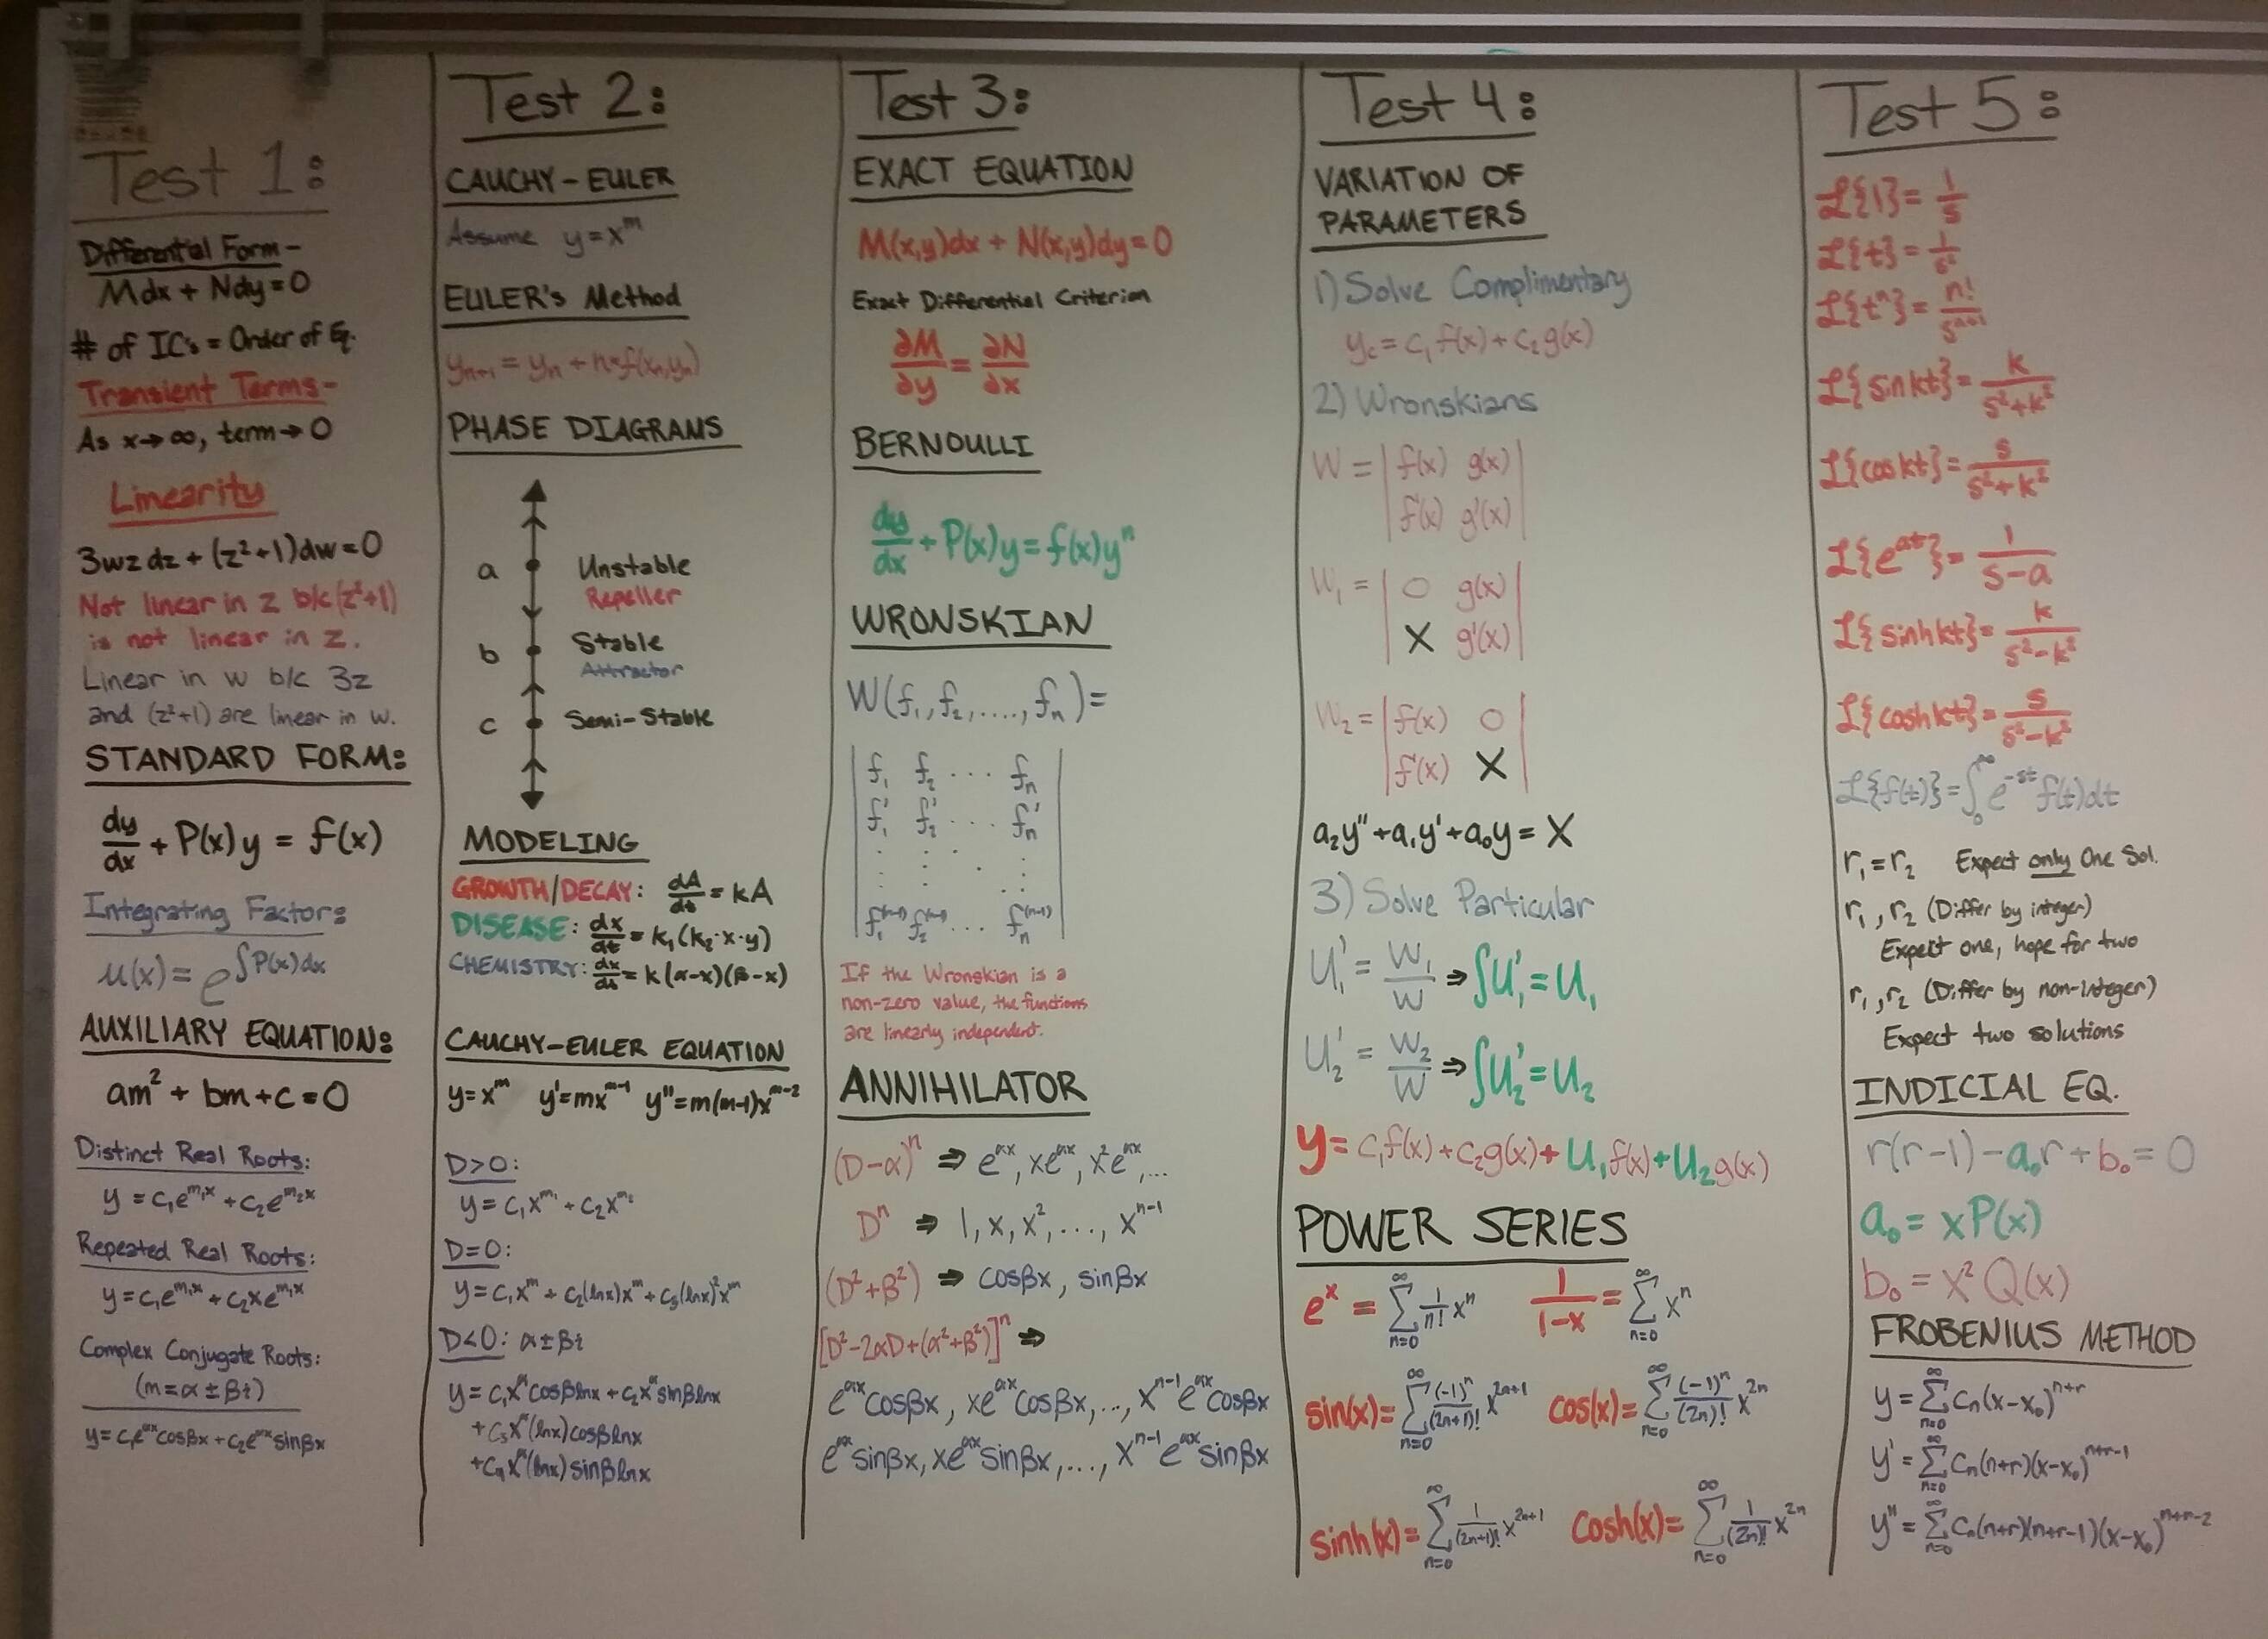 Test 1:
Differential Form-
Mdx + Ndy = 0
# of IC's = Order of Eq.
Transient Terms-
As x→∞, term→0
Linearity
3wz dz + (z²+1)dw = 0
Not linear in z b/c (z²+1)
is not linear in z.
Linear in w b/c 3z
and (z²+1) are linear in w.
STANDARD FORM:
dy/dx + P(x)y = f(x)
Integrating Factor:
μ(x) = e^∫P(x)dx
AUXILIARY EQUATION:
am² + bm + c = 0
Distinct Real Roots:
y = c₁e^m₁x + c₂e^m₂x
Repeated Real Roots:
y = c₁e^m₁x + c₂xe^m₁x
Complex Conjugate Roots:
(m = α ± βi)
y = c₁e^αx cosβx + c₂e^αx sinβx
Test 2:
CAUCHY-EULER
Assume y = x^m
EULER's Method
yₙ₊₁ = yₙ + h•f(xₙ,yₙ)
PHASE DIAGRAMS
a Unstable
Repeller
b Stable
Attractor
c Semi-Stable
MODELING
GROWTH/DECAY: dA/dt = kA
DISEASE: dx/dt = k₁(k₂·x·y)
CHEMISTRY: dx/dt = k(α-x)(β-x)
CAUCHY-EULER EQUATION
y=x^m y'=mx^(m-1) y''=m(m-1)x^(m-2)
D>0:
y = c₁x^m₁ + c₂x^m₂
D=0:
y = c₁x^m + c₂(lnx)x^m + c₃(lnx)²x^m
D<0: α±βi
y = c₁x^α cosβlnx + c₂x^α sinβlnx
+c₃x^α(lnx)cosβlnx
+c₄x^α(lnx)sinβlnx
Test 3:
EXACT EQUATION
M(x,y)dx + N(x,y)dy = 0
Exact Differential Criterion
∂M/∂y = ∂N/∂x
BERNOULLI
dy/dx + P(x)y = f(x)y^n
WRONSKIAN
W(f₁, f₂, ...., fₙ) =
f₁ f₂ ... fₙ
f₁' f₂' ... fₙ'
. . . .
. . . .
f₁^(n-1) f₂^(n-1) ... fₙ^(n-1)
If the Wronskian is a
non-zero value, the functions
are linearly independent.
ANNIHILATOR
(D-α)^n ⇒ e^αx, xe^αx, x²e^αx,...
D^n ⇒ 1, x, x², ..., x^(n-1)
(D²+β²) ⇒ cosβx, sinβx
[D²-2αD+(α²+β²)]^n ⇒
e^αx cosβx, xe^αx cosβx, ..., x^(n-1)e^αx cosβx
e^αx sinβx, xe^αx sinβx, ..., x^(n-1)e^αx sinβx
Test 4:
VARIATION OF
PARAMETERS
1) Solve Complimentary
y_c = c₁f(x) + c₂g(x)
2) Wronskians
W = | f(x) g(x) |
| f'(x) g'(x) |
W₁ = | 0 g(x) |
| X g'(x) |
W₂ = | f(x) 0 |
| f'(x) X |
a₂y'' + a₁y' + a₀y = X
3) Solve Particular
U₁' = W₁/W ⇒ ∫U₁' = U₁
U₂' = W₂/W ⇒ ∫U₂' = U₂
y = c₁f(x) + c₂g(x) + U₁f(x) + U₂g(x)
POWER SERIES
e^x = ∑_{n=0}^∞ 1/n! x^n 1/(1-x) = ∑_{n=0}^∞ x^n
sin(x) = ∑_{n=0}^∞ (-1)^n/(2n+1)! x^(2n+1) cos(x) = ∑_{n=0}^∞ (-1)^n/(2n)! x^2n
sinh(x) = ∑_{n=0}^∞ 1/(2n+1)! x^(2n+1) cosh(x) = ∑_{n=0}^∞ 1/(2n)! x^2n
Test 5:
ℒ{1} = 1/s
ℒ{t} = 1/s²
ℒ{t^n} = n!/s^(n+1)
ℒ{sin kt} = k/(s²+k²)
ℒ{cos kt} = s/(s²+k²)
ℒ{e^at} = 1/(s-a)
ℒ{sinh kt} = k/(s²-k²)
ℒ{cosh kt} = s/(s²-k²)
ℒ{f(t)} = ∫₀^∞ e^(-st) f(t)dt
r₁ = r₂ Expect only One Sol.
r₁, r₂ (Differ by integer)
Expect one, hope for two
r₁, r₂ (Differ by non-integer)
Expect two solutions
INDICIAL EQ.
r(r-1) - a₀r + b₀ = 0
a₀ = xP(x)
b₀ = x²Q(x)
FROBENIUS METHOD
y = ∑_{n=0}^∞ cₙ(x-x₀)^(n+r)
y' = ∑_{n=0}^∞ cₙ(n+r)(x-x₀)^(n+r-1)
y'' = ∑_{n=0}^∞ cₙ(n+r)(n+r-1)(x-x₀)^(n+r-2)